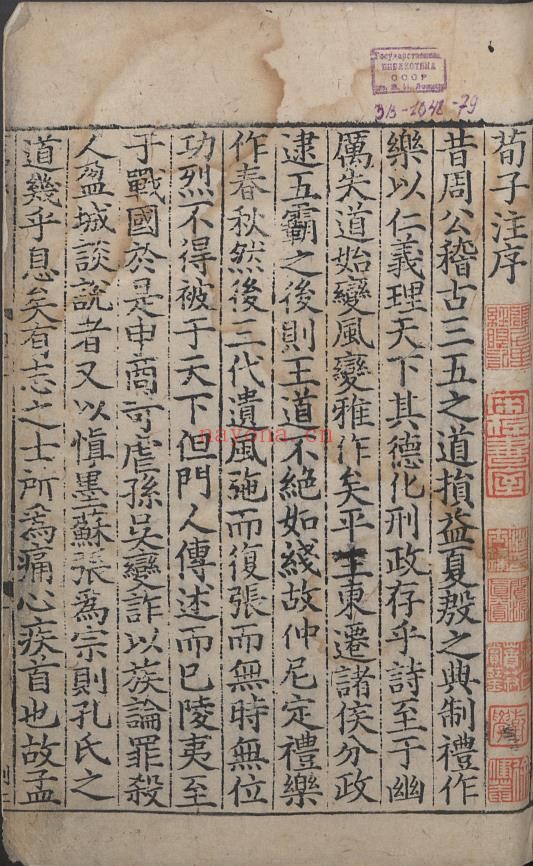 荀子注序
昔周公稽古三五之道損益夏殷之典制禮作
樂以仁義理天下其德化刑政存乎詩至于幽
厲失道始變風變雅作矣平王東遷諸侯分政
逮五霸之後則王道不絶如綫故仲尼定禮樂
作春秋然後三代遺風弛而復張而無時無位
功烈不得被于天下但門人傳述而已陵夷至
于戰國於是申商苛虐孫吳變詐以族論罪殺
人盈城談説者又以慎墨蘇張爲宗則孔氏之
道幾乎息矣有志之士所爲痛心疾首也故孟
Государственная
БИБЛИОТЕКА
СССР
3В-1042-79
nayona.cn